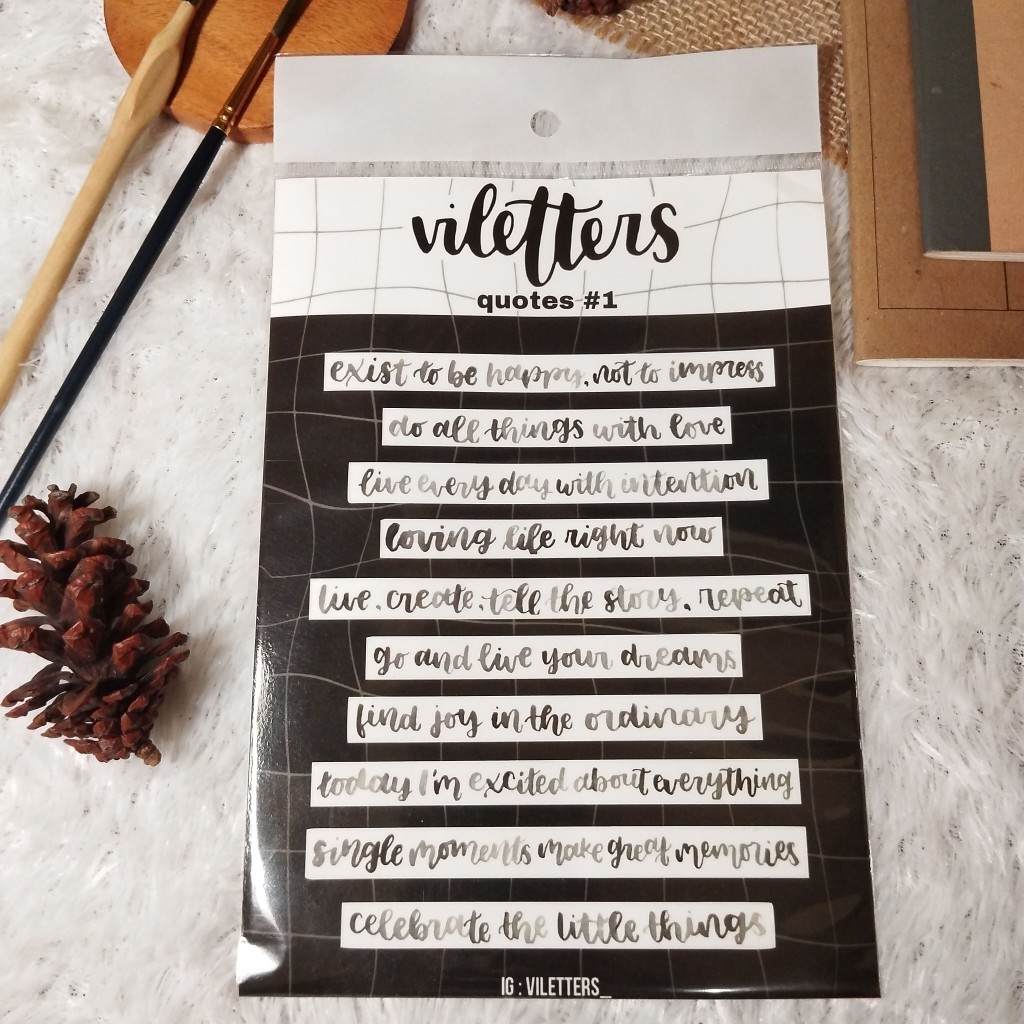 viletters
quotes #1
exist to be happy, not to impress
do all things with love
live every day with intention
loving life right now
live. create. tell the story. repeat
go and live your dreams
find joy in the ordinary
today I'm excited about everything
single moments make great memories
celebrate the little things
IG : VILETTERS_